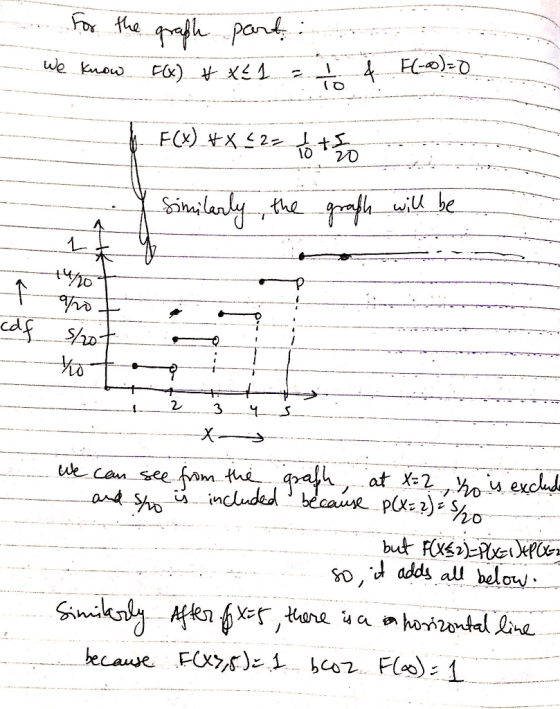 For the graph part:
we know F(x) ∀ x≤1 = 1/10 & F(-∞)=0
F(x) ∀ x ≤ 2 = 1/10 + 5/20
Similarly, the graph will be
1
14/20
9/20
cdf
5/20
1/10
1 2 3 4 5
X
we can see from the graph, at x=2, 1/20 is exclud
and 5/20 is included because P(X=2) = 5/20
but F(X≤2)=P(X=1)+P(X=2
so, it adds all below.
Similarly After X=5, there is a horizontal line
because F(X>,5)= 1 bcoz F(∞) = 1